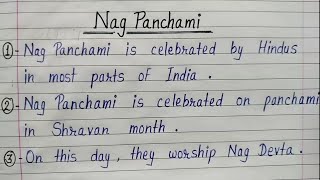 Nag Panchami
1- Nag Panchami is celebrated by Hindus
in most parts of India .
2- Nag Panchami is celebrated on panchami
in Shravan month .
3- On this day , they worship Nag Devta .